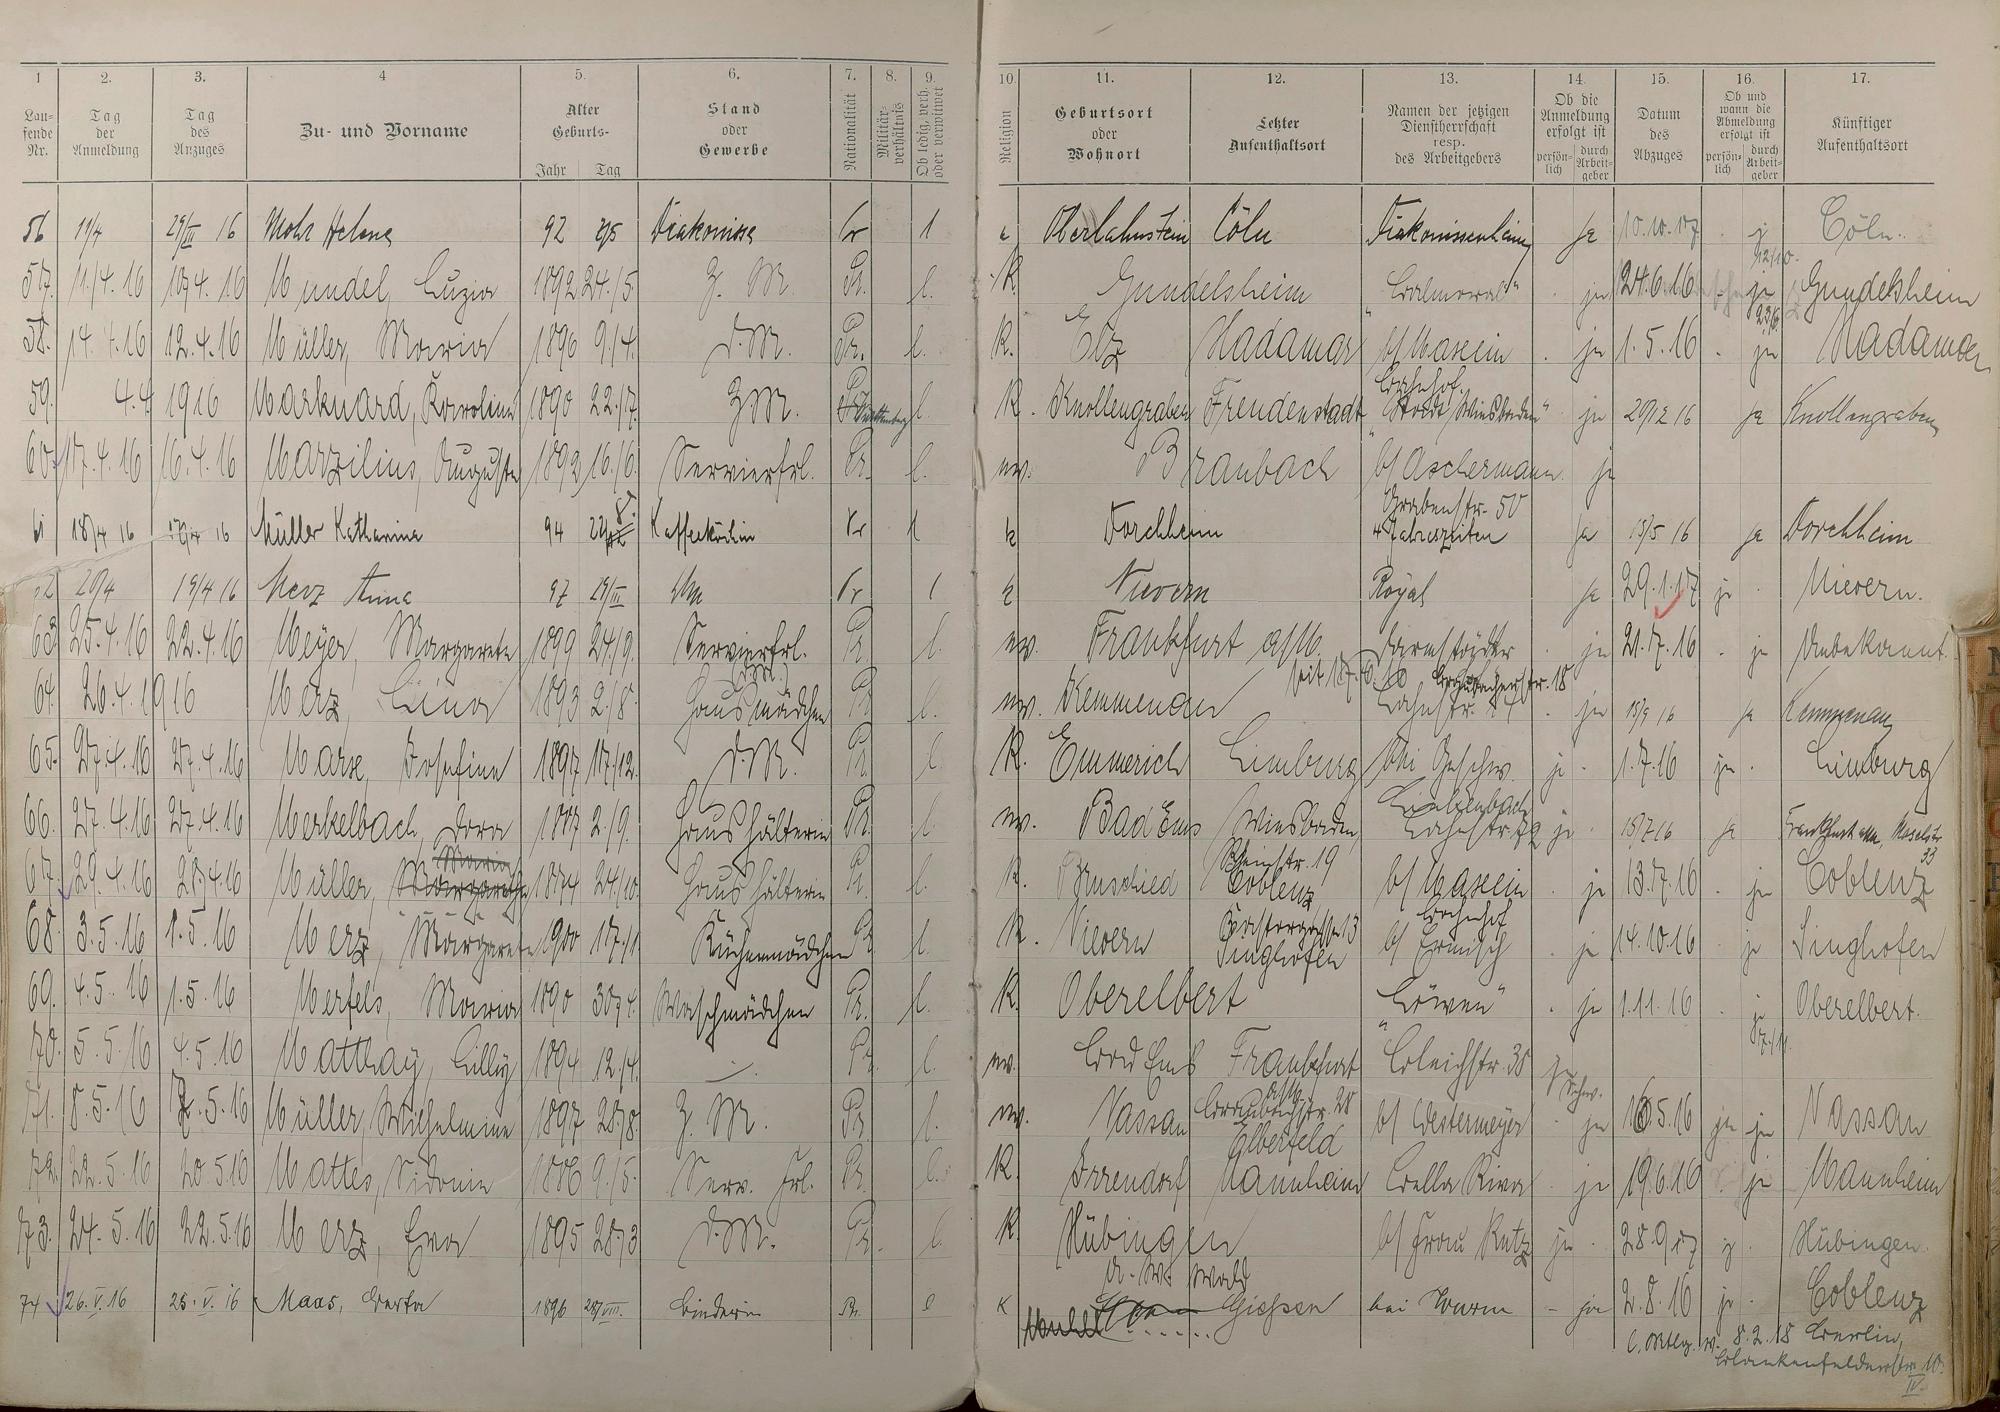 1 2. 3. 4 5. 6. 7. 8. 9. 10. 11. 12. 13. 14. 15. 16. 17.
Lau-
fende
Nr.
Tag
der
Anmeldung
Tag
des
Anzuges
Zu- und Vorname
Alter
Geburts-
Jahr Tag
Stand
oder
Gewerbe
Nationalität
Militär-
verhältnis
Ob ledig, verh.
oder verwitwet
Religion
Geburtsort
oder
Wohnort
Letzter
Aufenthaltsort
Namen der jetzigen
Dienstherrschaft
resp.
des Arbeitgebers
Ob die
Anmeldung
erfolgt ist
persön-
lich
durch
Arbeit-
geber
Datum
des
Abzuges
Ob und
wann die
Abmeldung
erfolgt ist
persön-
lich
durch
Arbeit-
geber
Künftiger
Aufenthaltsort
56 11/4 29/III 16 Mohr Helene 92 Diakonisse Pr 1 e Oberlahnstein Cöln Diakonissenheim Ja 10.10.17 j Cöln.
57. 11/4.16 10/4.16 Mundel, Luzia 1892 24./5. Z. M. Pr. l. K. Gundelsheim „Balmoral" ja 24.6.16 ja Gundelsheim
58. 14.4.16 12.4.16 Müller, Maria 1896 9./4. d.M. Pr. l. K. Elz Hadamar b/ Massein ja 1.5.16 ja Hadamar
Bahnhof
59. 4.4 1916 Marknard, Karoline 1890 22./7. Z.M. Württemberg l. K. Knollengraben Freudenstadt „Stadt Wiesbaden" ja 20/12 16 ja Knollengraben
60. 17.4.16 16.4.16 Marzilius, Auguste 1893 16./6. Servierfrl. Pr. l. ev. Braubach b/ Aschermann je
Grabenstr. 50
61 18/4 16 16 Müller Katharina 94 Kaffeeköchin Pr 1 k Dorchheim 4 Jahreszeiten Ja 15/5 16 ja Dorchheim
62 20/4 19/4 16 Merz Anna 97 29/III Pr 1 k Nievern Royal Ja 29.1.17 je Nievern.
63 25.4.16 22.4.16 Meyer, Margarete 1899 24./9. Servierfrl. Pr. l. ev. Frankfurt a/M. Darmstädter ja 21.7.16 je Unbekannt.
64. 26.4.1916 Merz, Lina 1893 2./8. Hausmädchen Pr. l. ev. Kemmenau Lahnstr. ja 15/9 16 ja Kemmenau
65. 27.4.16 27.4.16 Marx, Josefine 1897 17./12. d.M. Pr. l. K. Emmerich Limburg bei Geschw. je 1.7.16 je Limburg
Liebenbach
66. 27.4.16 27.4.16 Merkelbach, Dora 1887 2./9. Haushälterin Pr. l. ev. Bad Ems Wiesbaden, Lahnstr. 72 je 15/7 16 ja Frankfurt a/M, Moselstr
33
Rheinstr. 19
67. 29.4.16 28.4.16 Müller, 1874 24./10. Haushälterin Pr. l. K. Bruschied Coblenz b/ Massein je 13.7.16 je Coblenz
Bahnhof
68. 3.5.16 1.5.16 Merz, Margarete 1900 17./1. Küchenmädchen Pr l. K. Nievern Singhofen b/ Ermisch je 14.10.16 je Singhofen
69. 4.5.16 1.5.16 Merfels, Maria 1890 30./4. Waschmädchen Pr. l. K. Oberelbert „Löwen" je 1.11.16 je Oberelbert.
70. 5.5.16 4.5.16 Matthay, Cilly 1894 12./4. Pr. l. ev. Bad Ems Frankfurt Bleichstr. 38
a/M.
71. 8.5.16 7.5.16 Müller, Wilhelmine 1897 28./8. Z. M. Pr. l. ev. Nassau Elberfeld b/ Westermeyer je 16.5.16 je je Nassau
72. 22.5.16 20.5.16 Mattes, Sidonie 1886 9./5. Serv. Frl. Pr. l. K. Irrendorf Mannheim Bella Riva je 19.6.16 je Mannheim
73. 24.5.16 22.5.16 Merz, Eva 1895 28./3 d.M. Pr. l. K. Hübingen b/ Frau Rutz je 28.9.17 je Hübingen.
74 26.V.16 25.V.16 Maas, Berta 1896 28/VIII. Binderin Pr. l K Giessen bei Wurm – ja 2.8.16 je Coblenz
8.2.18 Berlin,
Blankenfelderstr. 10.
IV.